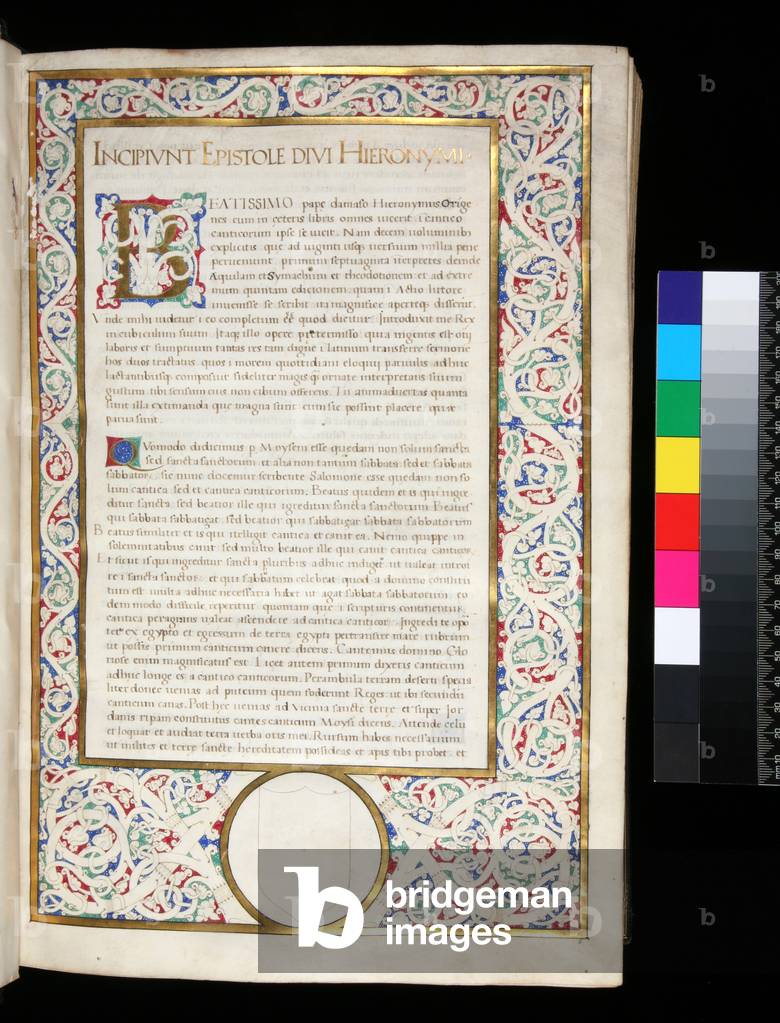 INCIPIVNT EPISTOLE DIVI HIERONYMI
BEATISSIMO pape damaso Hieronymus Orige
nes cum in ceteris libris omnes uicerit i cantico
canticorum ipse se uicit. Nam decem uoluminib
explicitis que ad uiginti usq uersuum millia pene
perueniunt primum septuaginta iterpretes deinde
Aquilam et Symachum et theodotionem et ad extre
mum quintam editionem quam i Actio litore
inuenisse se scribit ita magnifice aperteq disserit.
Vnde mihi uidetur i eo completum eē quod dicitur Introduxit me Rex
in cubiculum suum Itaq illo opere pretermisso quia ingentis est otij
laboris et sumptuum tantas res tam digne i latinum transferre sermone
hos duos tractatus quos i morem quottidiani eloquij paruulis adhuc
lactantibusq composuit fideliter magis q̄ ornate interpretatus sum
gustum tibi sensum eius non cibum offerens. Tu animaduertas quanta
sint illa extimanda que magna sunt cum sic possint placere que
parua sunt.
QVomodo didicimus p Moysem esse quedam non solum sancta
sed sancta sanctorum et alia non tantum sabbata sed et sabbata
sabbator. sic nunc docemur scribente Salomone esse quedam non so
lum cantica sed et cantica canticorum. Beatus quidem et is qui ingre
ditur sancta sed beatior ille qui igreditur sancta sanctorum Beatus
qui sabbata sabbatizat sed beatior qui sabbatizat sabbata sabbatorum
Beatus similiter et is qui itelligit cantica et canit ea. Nemo quippe in
solemnitatibus canit sed multo beatior ille qui canit cantica canticor.
Et sicut is qui ingreditur sancta pluribus adhuc indiget ut ualeat introi
re i sancta sanctor et qui sabbatum celebrat quod a domino constitu
tum est multa adhuc necessaria habet ut agat sabbata sabbatorum eo
dem modo difficile reperitur quoniam que i scripturis continentur
cantica peragrans ualeat ascendere ad cantica canticor. Ingredi te opor
tet ex egypto et egressum de terra egypti pertransire mare rubrum
ut possis primum canticum canere dicens. Cantemus domino Glo
riose enim magnificatus est. Licet autem primum dixeris canticum
adhuc longe es a cantico canticorum. Perambula terram deserti spiria
liter donec uenias ad puteum quem foderunt Reges ut ibi secundū
canticum canas. Post hec uenias ad uicina sancte terre et super Jor
danis ripam constitutus cantes canticum Moysi dicens. Attende celū
et loquar et audiat terra uerba oris mei. Rursum habes necessarium
ut milites et terre sancte hereditatem possideas et apis tibi probet et
b bridgeman
images